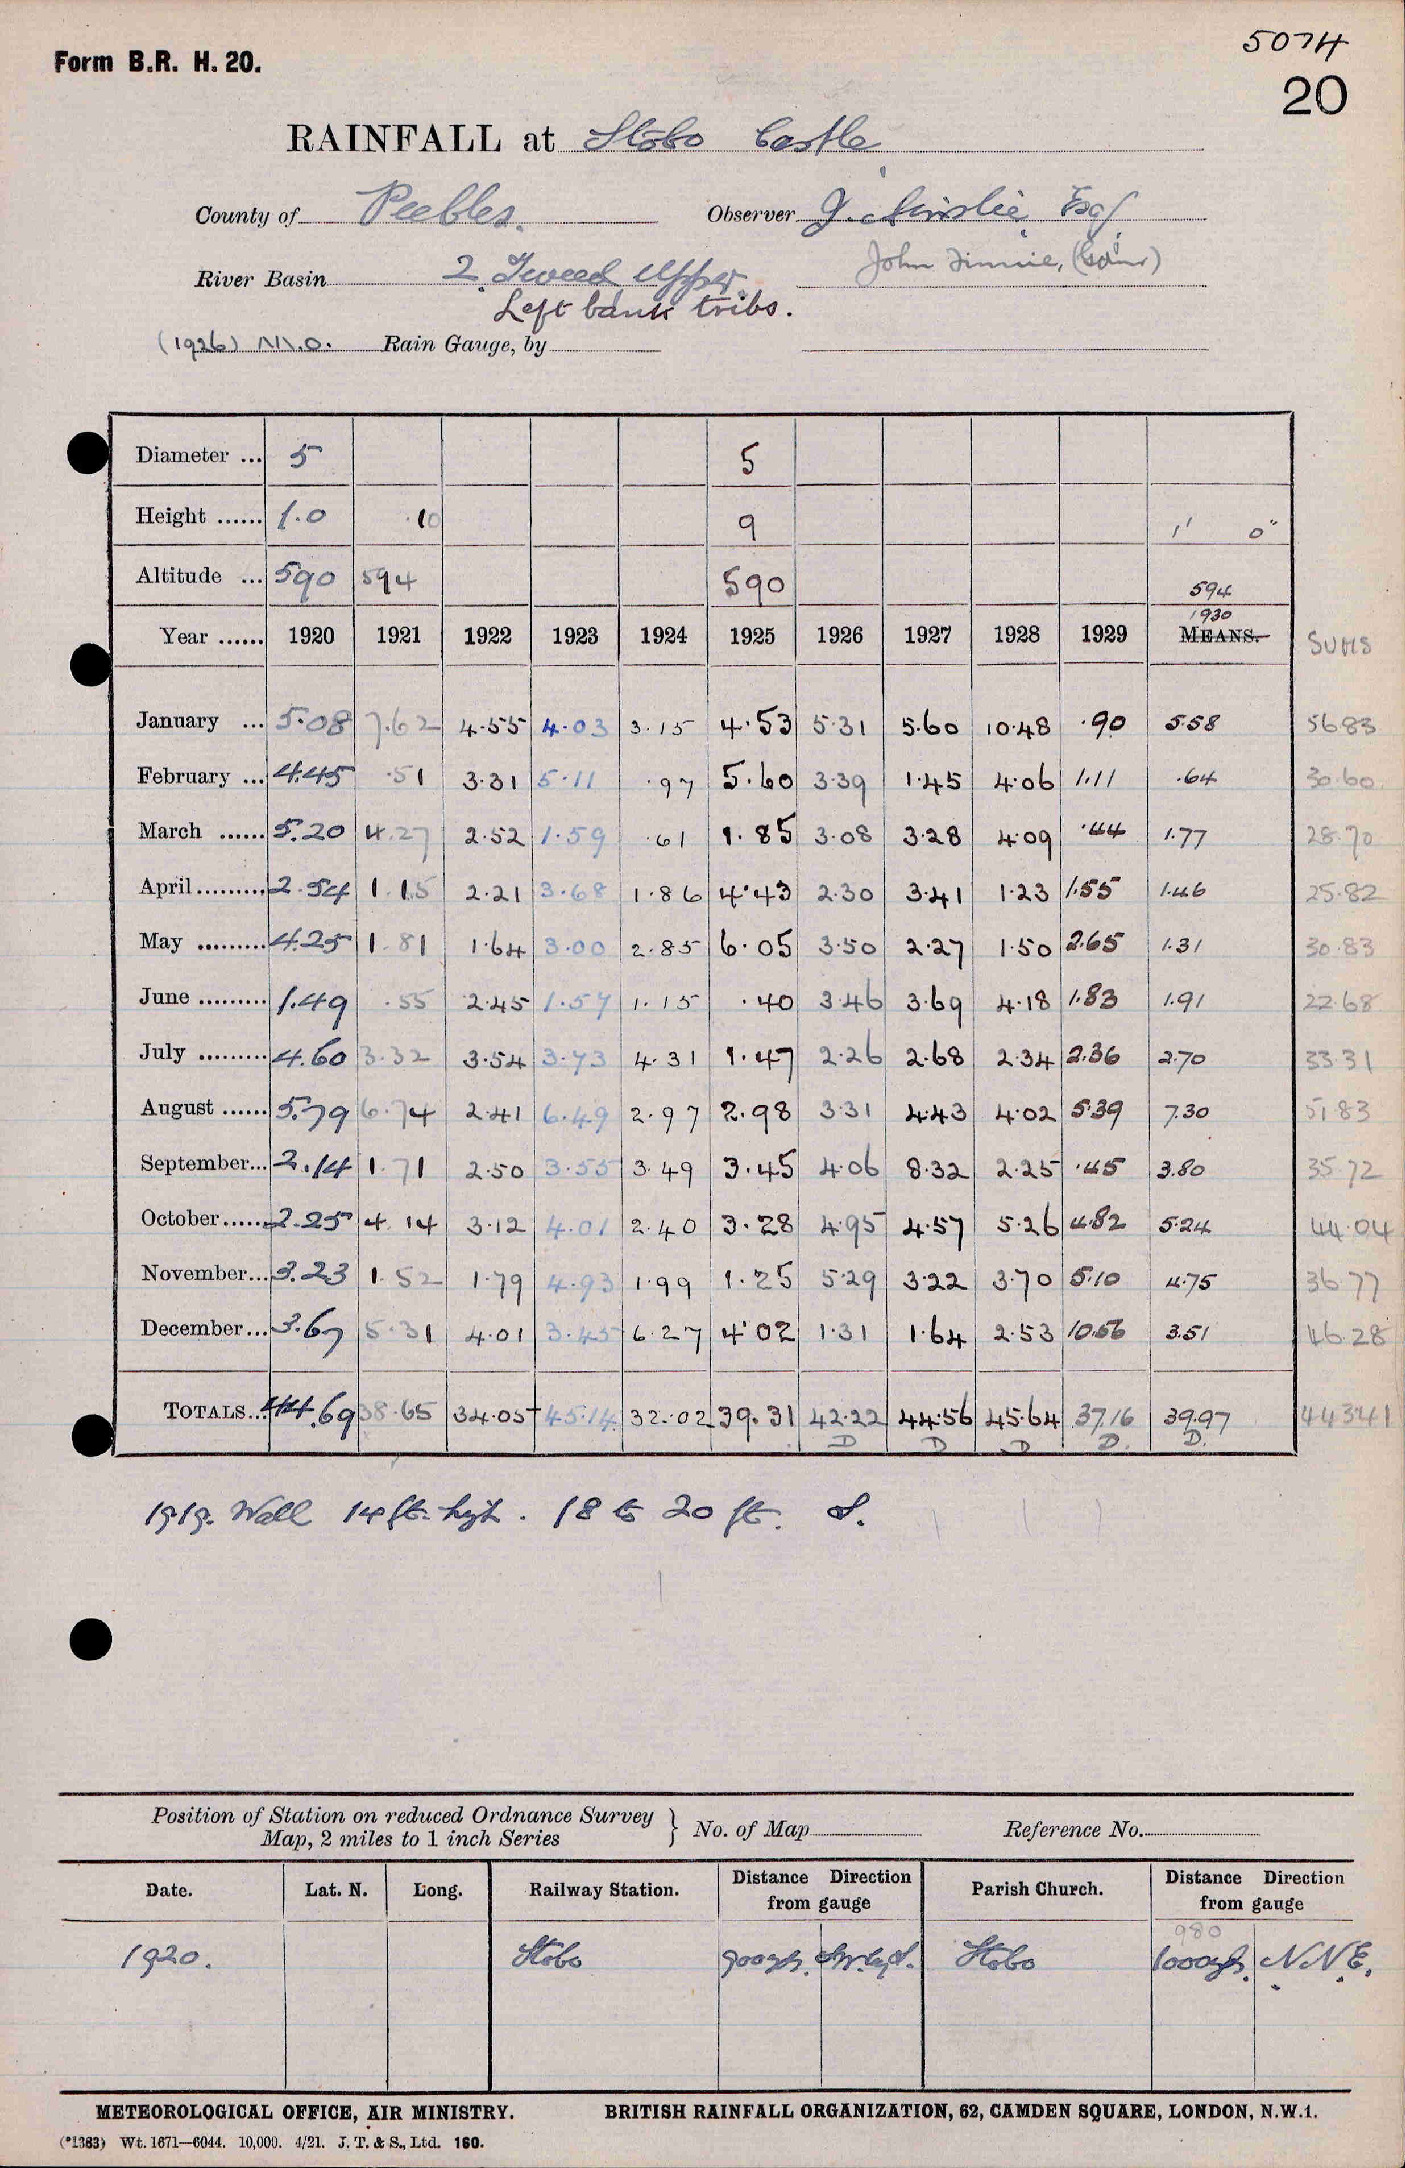 5074
Form B.R. H. 20.
20
RAINFALL at Stobo Castle
County of Peebles. Observer J. Ainslie Esq
River Basin 2 Tweed Upper John Finnie, (Gdnr)
Left bank tribs.
(1926) M.O. Rain Gauge, by
Diameter ... 5 5
Height ...... 1.0 .10 9 1' 0"
Altitude ... 590 594 590 594
1930
Year ...... 1920 1921 1922 1923 1924 1925 1926 1927 1928 1929 MEANS. SUMS
January ... 5.08 7.62 4.55 4.03 3.15 4.53 5.31 5.60 10.48 .90 5.58 56.83
February ... 4.45 .51 3.31 5.11 .97 5.60 3.39 1.45 4.06 1.11 .64 30.60
March ...... 5.20 4.27 2.52 1.59 .61 1.85 3.08 3.28 4.09 .44 1.77 28.70
April ......... 2.54 1.15 2.21 3.68 1.86 4.43 2.30 3.41 1.23 1.55 1.46 25.82
May ......... 4.25 1.81 1.64 3.00 2.85 6.05 3.50 2.27 1.50 2.65 1.31 30.83
June ......... 1.49 .55 2.45 1.57 1.15 .40 3.46 3.69 4.18 1.83 1.91 22.68
July ......... 4.60 3.32 3.54 3.73 4.31 1.47 2.26 2.68 2.34 2.36 2.70 33.31
August ...... 5.79 6.74 2.41 6.49 2.97 2.98 3.31 4.43 4.02 5.39 7.30 51.83
September... 2.14 1.71 2.50 3.55 3.49 3.45 4.06 8.32 2.25 .45 3.80 35.72
October...... 2.25 4.14 3.12 4.01 2.40 3.28 4.95 4.57 5.26 4.82 5.24 44.04
November... 3.23 1.52 1.79 4.93 1.99 1.25 5.29 3.22 3.70 5.10 4.75 36.77
December... 3.67 5.31 4.01 3.45 6.27 4.02 1.31 1.64 2.53 10.56 3.51 46.28
TOTALS... 44.69 38.65 34.05+ 45.14 32.02 39.31 42.22 44.56 45.64 37.16 39.97 443.41
D D D D. D.
1919. Wall 14 ft. high. 18 to 20 ft. S.
Position of Station on reduced Ordnance Survey
Map, 2 miles to 1 inch Series } No. of Map Reference No.
Date. Lat. N. Long. Railway Station. Distance Direction from gauge Parish Church. Distance Direction from gauge
980
1920. Stobo 900 yds. SW by S. Stobo 1000 yds. N.N.E.
METEOROLOGICAL OFFICE, AIR MINISTRY. BRITISH RAINFALL ORGANIZATION, 62, CAMDEN SQUARE, LONDON, N.W.1.
(*1363) Wt. 1671—6044. 10,000. 4/21. J. T. & S., Ltd. 160.